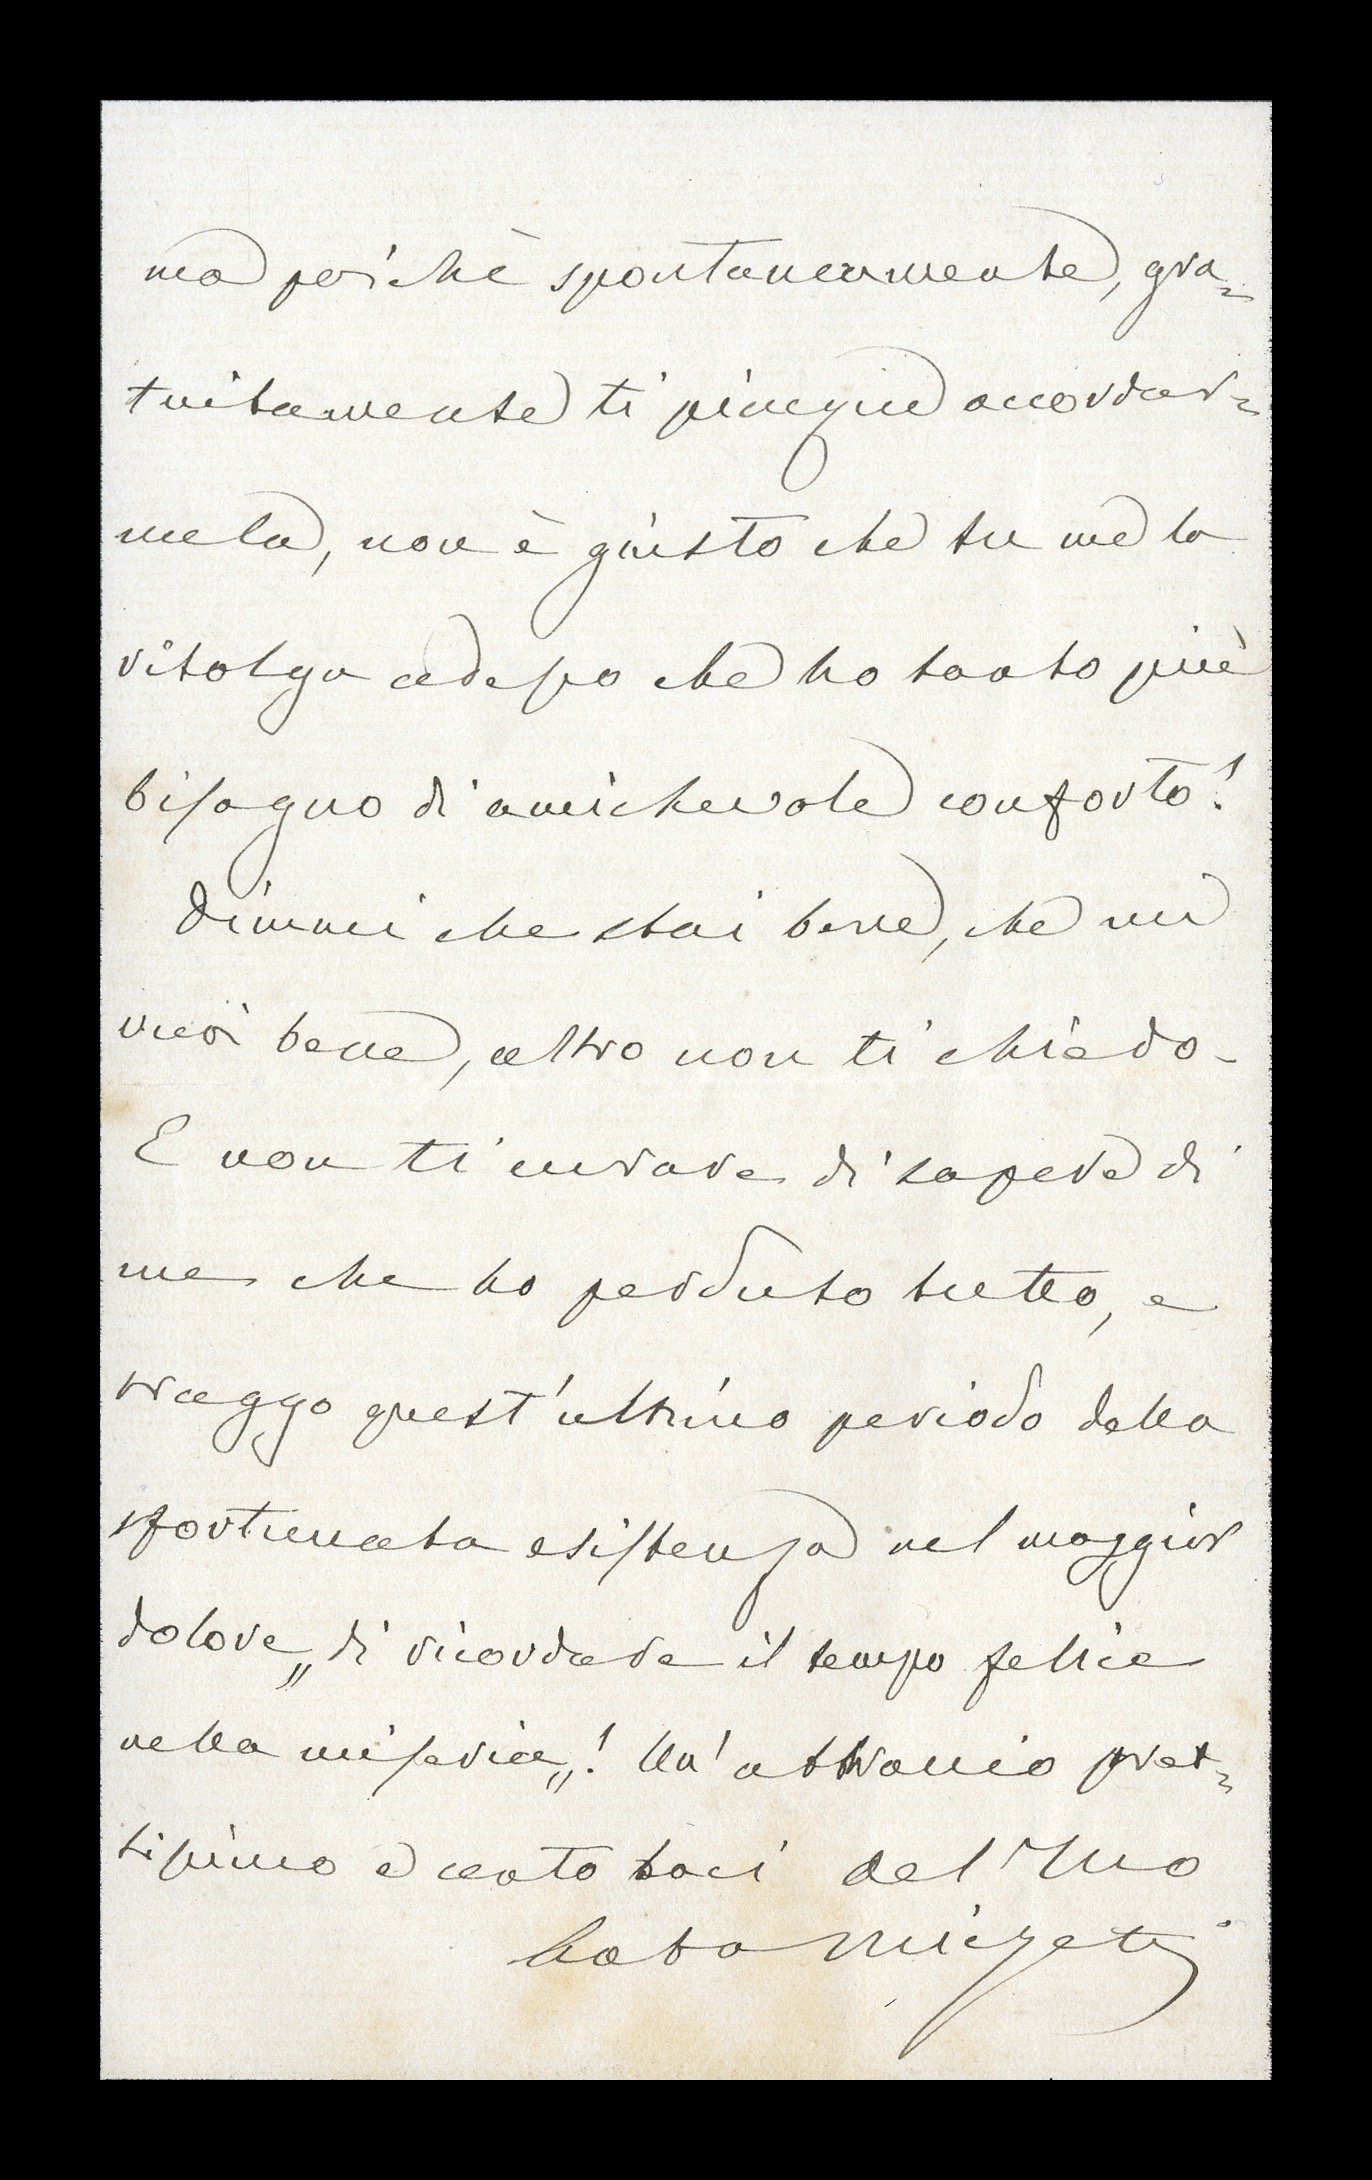 ma poichè spontaneamente, gra=
tuitamente ti piacque accordar=
mela, non è giusto che tu me la
ritolga adesso che ho tanto più
bisogno di amichevole conforto!
Dimmi che stai bene, che mi
vuoi bene, altro non ti chiedo -
E non ti curare di sapere di
me che ho perduto tutto, e
traggo quest'ultimo periodo della
sfortunata esistenza nel maggior
dolore „di ricordare il tempo felice
nella miseria„! Un'abbraccio
e cento baci del Tuo